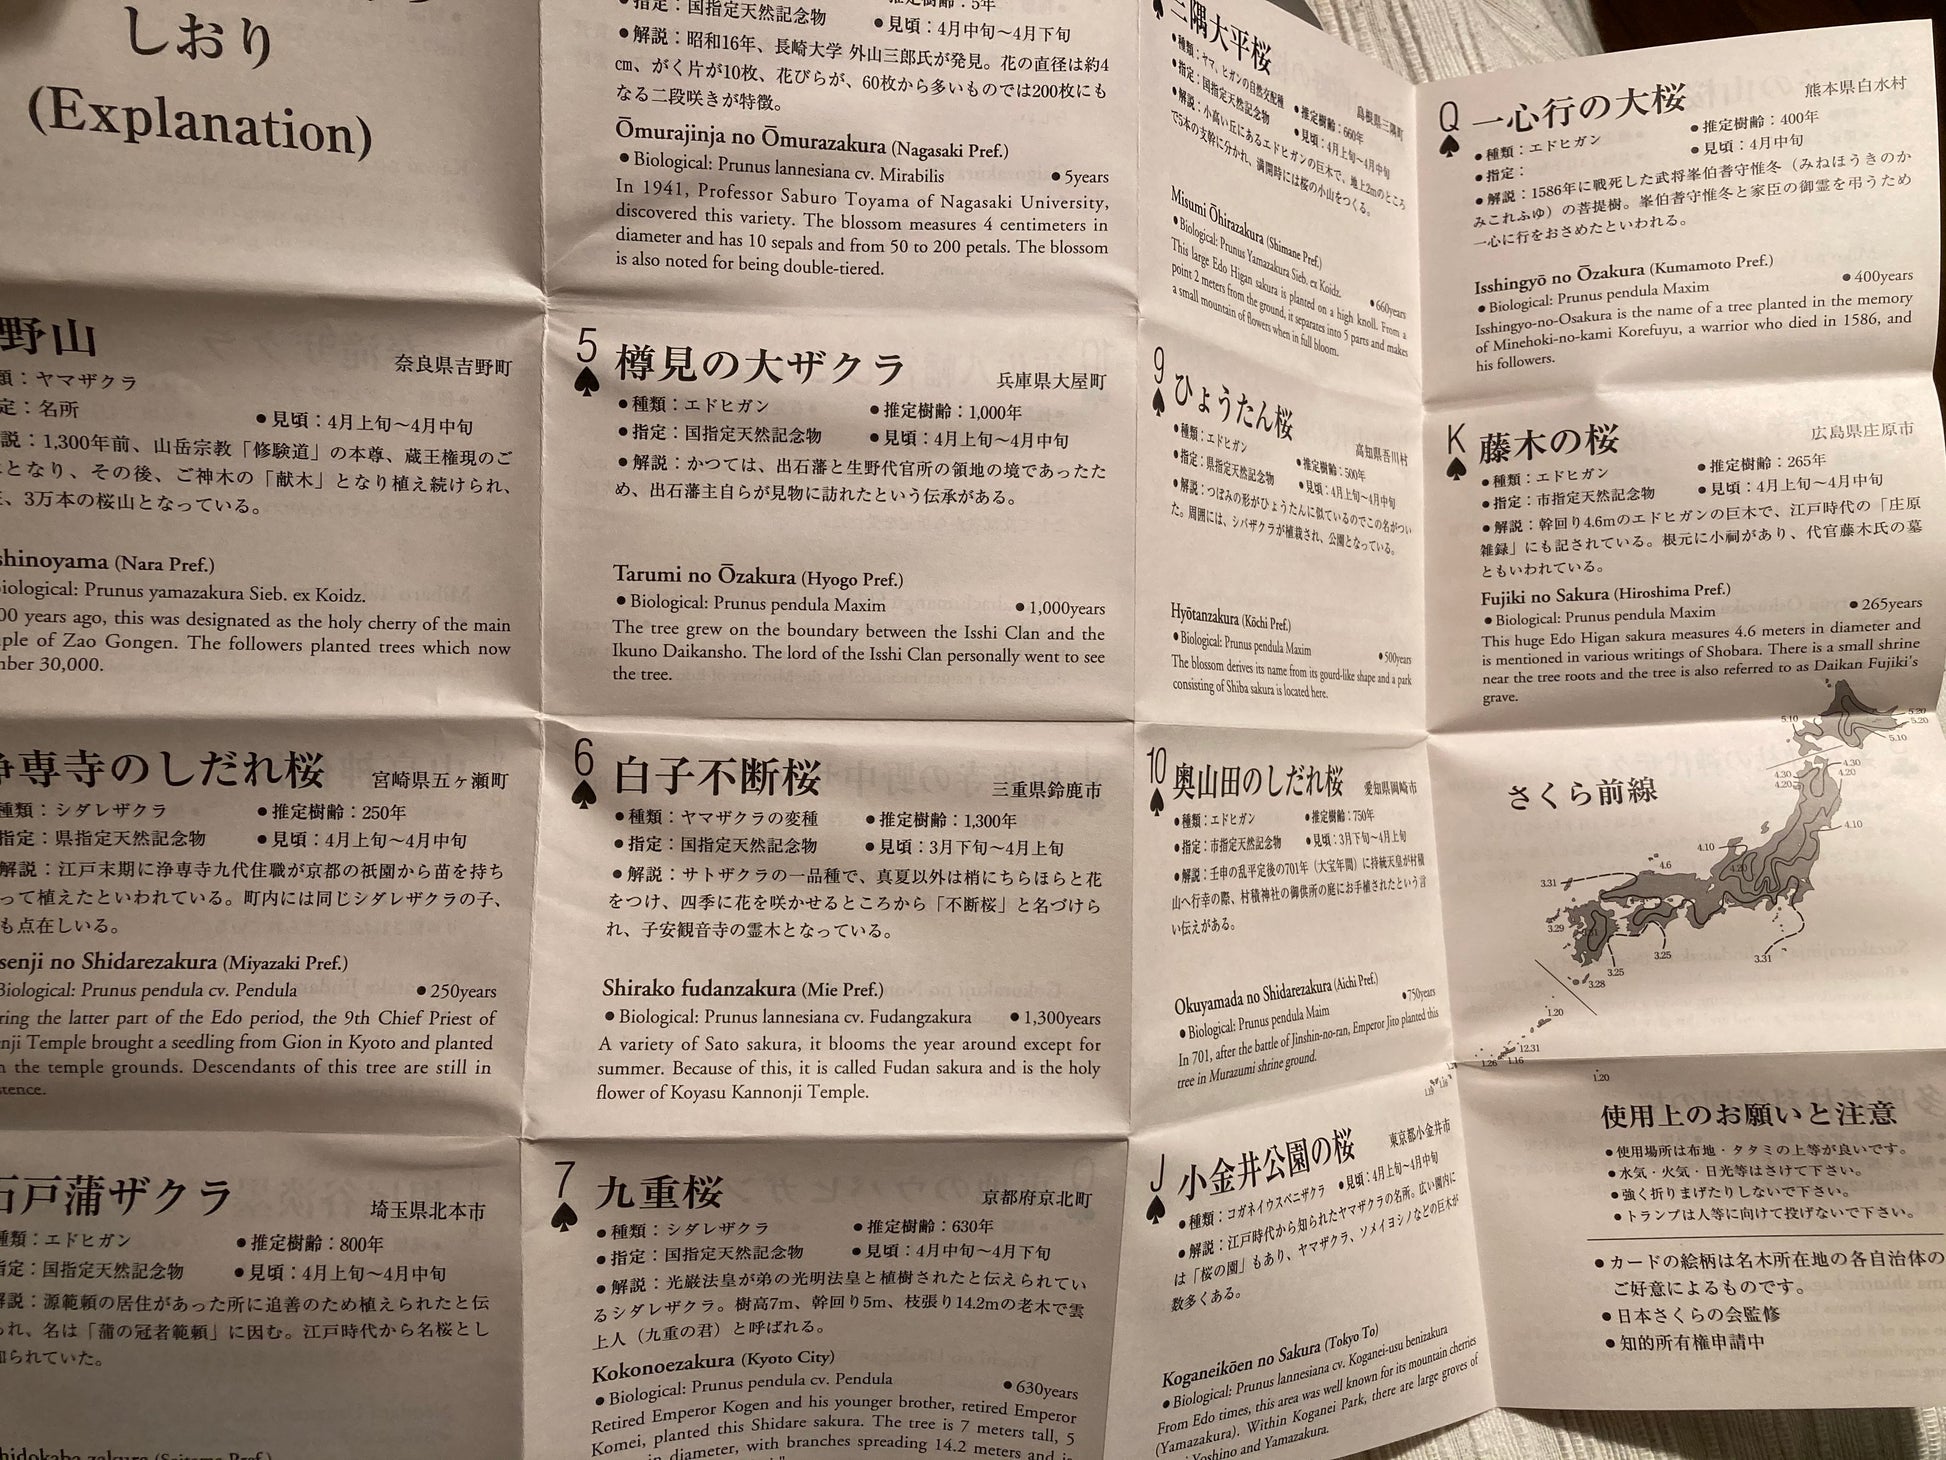 しおり
(Explanation)
野山
奈良県吉野町
類：ヤマザクラ
定：名所
●見頃：4月上旬〜4月中旬
説：1,300年前、山岳宗教「修験道」の本尊、蔵王権現のご
となり、その後、ご神木の「献木」となり植え続けられ、
、3万本の桜山となっている。
shinoyama (Nara Pref.)
iological: Prunus yamazakura Sieb. ex Koidz.
00 years ago, this was designated as the holy cherry of the main
ple of Zao Gongen. The followers planted trees which now
ber 30,000.
専寺のしだれ桜
宮崎県五ヶ瀬町
種類：シダレザクラ
●推定樹齢：250年
指定：県指定天然記念物
●見頃：4月上旬〜4月中旬
解説：江戸末期に浄専寺九代住職が京都の祇園から苗を持ち
って植えたといわれている。町内には同じシダレザクラの子、
も点在しいる。
senji no Shidarezakura (Miyazaki Pref.)
Biological: Prunus pendula cv. Pendula
●250years
ring the latter part of the Edo period, the 9th Chief Priest of
enji Temple brought a seedling from Gion in Kyoto and planted
n the temple grounds. Descendants of this tree are still in
tence.
石戸蒲ザクラ
埼玉県北本市
種類：エドヒガン
●推定樹齢：800年
指定：国指定天然記念物
●見頃：4月上旬〜4月中旬
解説：源範頼の居住があった所に追善のため植えられたと伝
られ、名は「蒲の冠者範頼」に因む。江戸時代から名桜とし
知られていた。
●指定：国指定天然記念物
●推定樹齢：5年
●見頃：4月中旬〜4月下旬
●解説：昭和16年、長崎大学 外山三郎氏が発見。花の直径は約4
㎝、がく片が10枚、花びらが、60枚から多いものでは200枚にも
なる二段咲きが特徴。
Ōmurajinja no Ōmurazakura (Nagasaki Pref.)
●Biological: Prunus lannesiana cv. Mirabilis
●5years
In 1941, Professor Saburo Toyama of Nagasaki University,
discovered this variety. The blossom measures 4 centimeters in
diameter and has 10 sepals and from 50 to 200 petals. The blossom
is also noted for being double-tiered.
5♠
樽見の大ザクラ
兵庫県大屋町
●種類：エドヒガン
●推定樹齢：1,000年
●指定：国指定天然記念物
●見頃：4月上旬〜4月中旬
●解説：かつては、出石藩と生野代官所の領地の境であったた
め、出石藩主自らが見物に訪れたという伝承がある。
Tarumi no Ōzakura (Hyogo Pref.)
●Biological: Prunus pendula Maxim
●1,000years
The tree grew on the boundary between the Isshi Clan and the
Ikuno Daikansho. The lord of the Isshi Clan personally went to see
the tree.
6♠
白子不断桜
三重県鈴鹿市
●種類：ヤマザクラの変種
●推定樹齢：1,300年
●指定：国指定天然記念物
●見頃：3月下旬〜4月上旬
●解説：サトザクラの一品種で、真夏以外は梢にちらほらと花
をつけ、四季に花を咲かせるところから「不断桜」と名づけら
れ、子安観音寺の霊木となっている。
Shirako fudanzakura (Mie Pref.)
●Biological: Prunus lannesiana cv. Fudangzakura
●1,300years
A variety of Sato sakura, it blooms the year around except for
summer. Because of this, it is called Fudan sakura and is the holy
flower of Koyasu Kannonji Temple.
7♠
九重桜
京都府京北町
●種類：シダレザクラ
●推定樹齢：630年
●指定：国指定天然記念物
●見頃：4月中旬〜4月下旬
●解説：光厳法皇が弟の光明法皇と植樹されたと伝えられてい
るシダレザクラ。樹高7m、幹回り5m、枝張り14.2mの老木で雲
上人（九重の君）と呼ばれる。
Kokonoezakura (Kyoto City)
●Biological: Prunus pendula cv. Pendula
●630years
Retired Emperor Kogen and his younger brother, retired Emperor
Komei, planted this Shidare sakura. The tree is 7 meters tall, 5
in diameter, with branches spreading 14.2 meters and is
三隅大平桜
島根県三隅町
●種類：ヤマ、ヒガンの自然交配種
●推定樹齢：660年
●指定：国指定天然記念物
●見頃：4月上旬〜4月中旬
●解説：小高い丘にあるエドヒガンの巨木で、地上2mのところ
で5本の支幹に分かれ、満開時には桜の小山をつくる。
Misumi Ōhirazakura (Shimane Pref.)
●Biological: Prunus Yamazakura Sieb. ex Koidz.
●660years
This large Edo Higan sakura is planted on a high knoll. From a
point 2 meters from the ground, it separates into 5 parts and makes
a small mountain of flowers when in full bloom.
9♠
ひょうたん桜
高知県吾川村
●種類：エドヒガン
●推定樹齢：500年
●指定：県指定天然記念物
●見頃：4月上旬〜4月中旬
●解説：つぼみの形がひょうたんに似ているのでこの名がつい
た。周囲には、シバザクラが植栽され、公園となっている。
Hyōtanzakura (Kōchi Pref.)
●Biological: Prunus pendula Maxim
●500years
The blossom derives its name from its gourd-like shape and a park
consisting of Shiba sakura is located here.
10♠
奥山田のしだれ桜
愛知県岡崎市
●種類：エドヒガン
●推定樹齢：750年
●指定：市指定天然記念物
●見頃：3月下旬〜4月上旬
●解説：壬申の乱平定後の701年（大宝年間）に持統天皇が村積
山へ行幸の際、村積神社の御供所の庭にお手植されたという言
い伝えがある。
Okuyamada no Shidarezakura (Aichi Pref.)
●Biological: Prunus pendula Maim
●750years
In 701, after the battle of Jinshin-no-ran, Emperor Jito planted this
tree in Murazumi shrine ground.
J♠
小金井公園の桜
東京都小金井市
●種類：コガネイウスベニザクラ
●見頃：4月上旬〜4月中旬
●解説：江戸時代から知られたヤマザクラの名所。広い園内に
は「桜の園」もあり、ヤマザクラ、ソメイヨシノなどの巨木が
数多くある。
Koganeikōen no Sakura (Tokyo To)
●Biological: Prunus lannesiana cv. Koganei-usu benizakura
From Edo times, this area was well known for its mountain cherries
(Yamazakura). Within Koganei Park, there are large groves of
Yoshino and Yamazakura.
Q♠
一心行の大桜
熊本県白水村
●種類：エドヒガン
●推定樹齢：400年
●指定：
●見頃：4月中旬
●解説：1586年に戦死した武将峯伯耆守惟冬（みねほうきのか
みこれふゆ）の菩提樹。峯伯耆守惟冬と家臣の御霊を弔うため
一心に行をおさめたといわれる。
Isshingyō no Ōzakura (Kumamoto Pref.)
●Biological: Prunus pendula Maxim
●400years
Isshingyo-no-Osakura is the name of a tree planted in the memory
of Minehoki-no-kami Korefuyu, a warrior who died in 1586, and
his followers.
K♠
藤木の桜
広島県庄原市
●種類：エドヒガン
●推定樹齢：265年
●指定：市指定天然記念物
●見頃：4月上旬〜4月中旬
●解説：幹回り4.6mのエドヒガンの巨木で、江戸時代の「庄原
雑録」にも記されている。根元に小祠があり、代官藤木氏の墓
ともいわれている。
Fujiki no Sakura (Hiroshima Pref.)
●Biological: Prunus pendula Maxim
●265years
This huge Edo Higan sakura measures 4.6 meters in diameter and
is mentioned in various writings of Shobara. There is a small shrine
near the tree roots and the tree is also referred to as Daikan Fujiki's
grave.
さくら前線
5.10
5.20
5.20
5.10
4.30
4.20
4.30
4.20
4.10
4.10
4.20
4.6
3.31
3.29
3.31
3.25
3.25
3.31
3.28
1.20
12.31
1.26
1.16
1.20
使用上のお願いと注意
●使用場所は布地・タタミの上等が良いです。
●水気・火気・日光等はさけて下さい。
●強く折りまげたりしないで下さい。
●トランプは人等に向けて投げないで下さい。
●カードの絵柄は名木所在地の各自治体の
ご好意によるものです。
●日本さくらの会監修
●知的所有権申請中